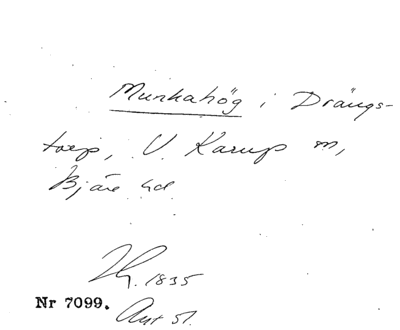 Munkahög i Drängs-
torp, V. Karup m,
Bjäre hd.
Th. 1835
Nr 7099.
Ant 51.